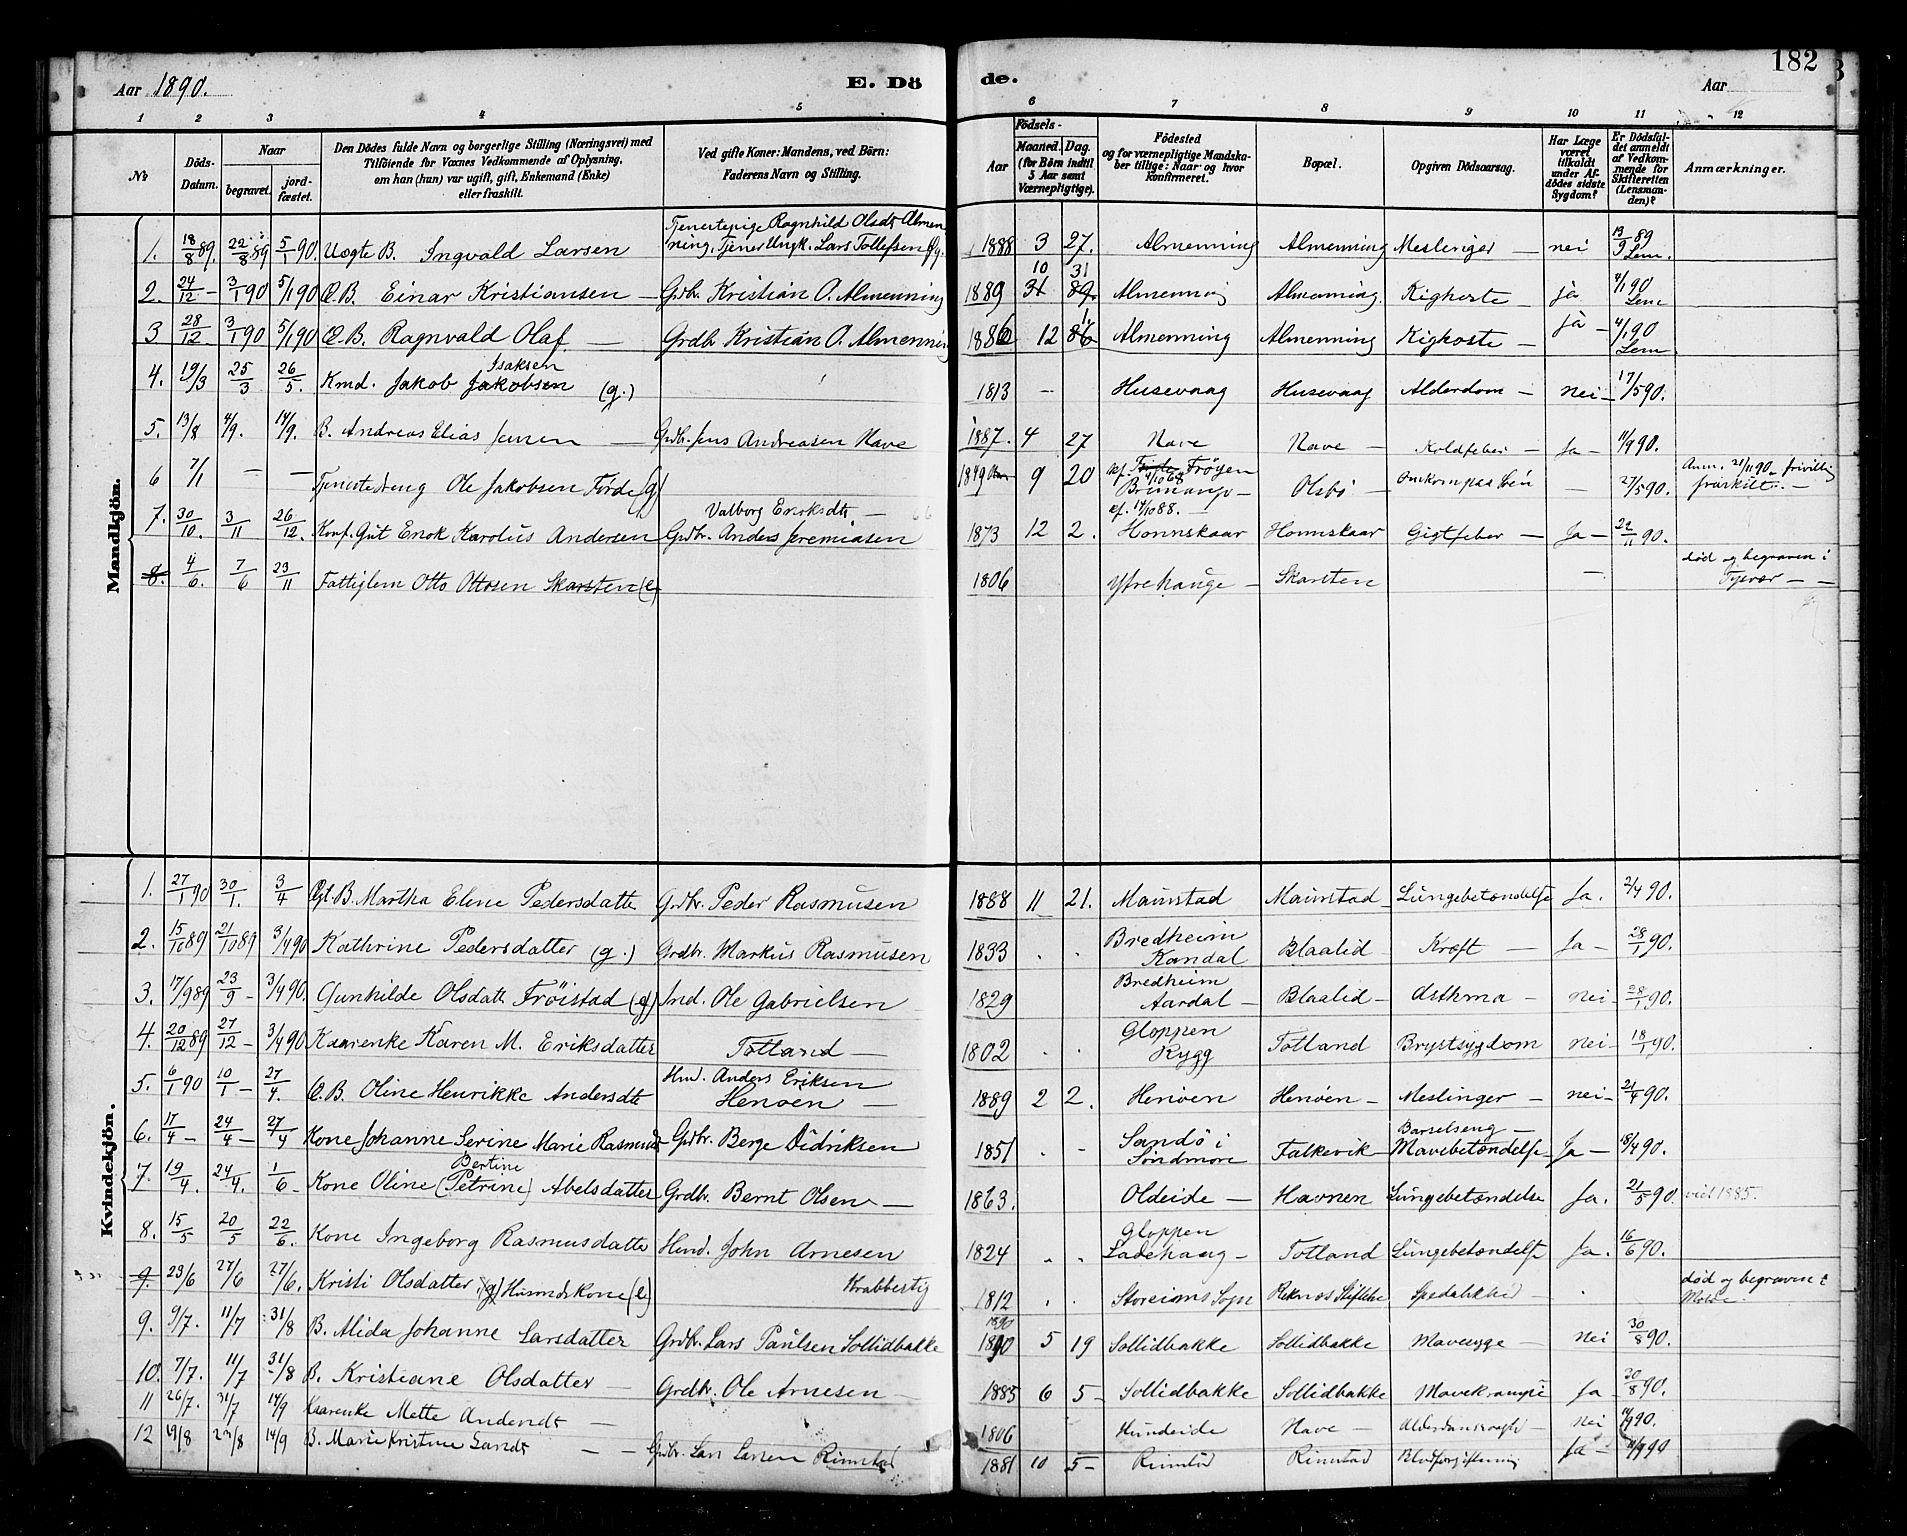 182
Aar 1890.
E. Dö de.
Aar
1 2 3 4 5 6 7 8 9 10 11 12
No
Döds-Datum.
Naar
begravet.
jord-fæstet.
Den Dödes fulde Navn og borgerlige Stilling (Næringsvei) med
Tilföiende for Voxnes Vedkommende af Oplysning,
om han (hun) var ugift, gift, Enkemand (Enke)
eller fraskilt.
Ved gifte Koner: Mandens, ved Börn:
Faderens Navn og Stilling.
Födsels-
Aar
Maaned. Dag.
(for Börn indtil
5 Aar samt
Værnepligtige).
Födested
og for værnepligtige Mandska-
ber tillige: Naar og hvor
konfirmeret.
Bopæl.
Opgiven Dödsaarsag.
Har Læge
været
tilkaldt
under Af-
dödes sidste
Sygdom?
Er Dödsfal-
det anmeldt
af Vedkom-
mende for
Skifteretten
(Lensman-
den)?
Anmærkninger.
Mandkjön.
Tjenestepige Ragnhild Olsdt Almen
1. 18/8 89. 22/8 89 5/1 90. Uægte B. Ingvald Larsen ning, Tjener Ungk. Lars Tollefsen 1888 3 27. Almenning Almenning Meslinger nei 13/9 89 Lem.
10 31
2. 24/12 3/1 90 5/1 90 Æ.B. Einar Kristiansen Grdbr. Kristian O. Almenning 1889 31 89 Almenning Almenning Kighoste ja 4/1 90 Lem
3 28/12 3/1 90 5/1 90 Æ.B. Ragnvald Olaf Grdb Kristian O. Almenning 1886 12 86 1. Almenning Almenning Kighoste ja 4/1 90 Lem
Isaksen
4. 19/3 25/3 26/5. Kmd. Jakob Jakobsen (g.) 1813 Husevaag Husevaag Alderdom nei 17/5 90.
5. 13/8 4/9. 14/9. B. Andreas Elias Jensen Grdbr. Jens Andreasen Nave 1887. 4 27 Nave Nave Koldfeber Ja 11/9 90.
6 7/1 Tjenestedreng Ole Jakobsen Förde (g) 1849 9 20 Fröyen Bremanger Olsbö Omkom paa Söen 27/5 90. Anm. 21/11 90 frivillig fraskilt.
kf. 1/10 88.
Valborg Enoksdt.
7. 30/10. 3/11 26/12. Konf. Gut Enok Karolus Andersen Grdbr. Anders Jeremiasen 1873 12 2. Honnskaar Honnskaar Gigtfeber Ja 22/11 90.
8. 4/6. 7/6 23/11 Fattiglem Otto Ottosen Skarsten (e) 1806 Ytrehauge Skarsten död og begraven i Tysvær
Kvindekjön.
1. 27/1 90 30/1. 3/4 Ægt. B. Martha Elene Pedersdatte Grdbr. Peder Rasmusen 1888 11 21. Maurstad Maurstad Lungebetændelse Ja. 2/4 90.
2. 15/10 89 21/10 89 3/4 90 Kathrine Pedersdatter (g.) Grdbr. Markus Rasmusen 1833 Bredheim Kandal Blaalid Kræft Ja 28/1 90.
3. 17/9 89 23/9 3/4 90. Gunhilde Olsdatt Fröistad (g) Ind. Ole Gabrielsen 1829 Bredheim Aardal Blaalid Asthma nei 28/1 90.
4. 20/12 89 27/12 3/4 90 Kaarenke Karen M. Eriksdatter Totland 1802 Gloppen Rygg Totland Brystsygdom nei 18/1 90.
5. 6/1 90 10/1 27/4. Æ.B. Oline Henrikke Andersdtr Hmd. Anders Eriksen Henöen 1889 2 2. Henöen Henöen Meslinger nei 21/4 90.
6. 17/4 24/4 27/4 Kone Johanne Serine Marie Rasmusd Grdbr. Berge Didriksen 1851 Sandö i Söndmöre Falkevik Barselseng Mavebetændelse Ja 18/4 90.
Bertine
7. 19/4. 24/4. 1/6 Kone Oline (Petrine) Abelsdatter Grdbr. Bernt Olsen 1863. Oldeide Havnen Lungebetændelse Ja. 21/5 90. viet 1885.
8. 15/5 20/5 22/6. Kone Ingeborg Rasmusdatte Hmd. John Arnesen 1824 Gloppen Ladehaug Totland Lungebetændelse Ja. 16/6 90.
9. 23/6 27/6 27/6. Kristi Olsdatter, (g) Husmdskone (e) Krabbestig 1812 Storeims Sogn Reknæs Stiftelse Spedalskhed död og begraven i Molde.
9. 9/7. 11/7 31/8 B. Alida Johanne Larsdatter Grdbr. Lars Paulsen Sollidbakke 1890 1890 5 19 Sollidbakke Sollidbakke Mavesyge nei 30/8 90.
10. 7/7. 11/7 31/8 B. Kristiane Olsdatter Grdbr. Ole Arnesen 1885 6 5 Sollidbakke Sollidbakke Mavekrampe Ja 30/8 90.
11 26/7. 31/7 14/9 Kaarenke Mette Andersdt 1806 Hundeide Nave nei 11/9 90.
12 19/8 14/9 B. Marie Kristine Larsdt Grdbr. Lars Larsen Rimstad 1881 10 5 Rimstad Rimstad Blodforgiftning Ja 11/9 90